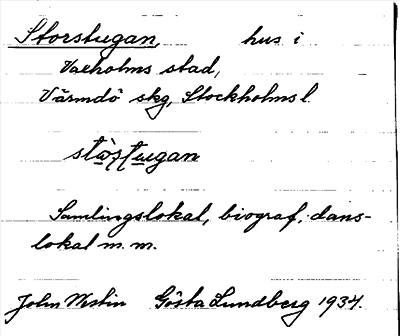 Storstugan, hus i
Vaxholms stad,
Värmdö skg, Stockholms l.
Samlingslokal, biograf, dans-
lokal m.m.
John Gösta Lundberg 1934.